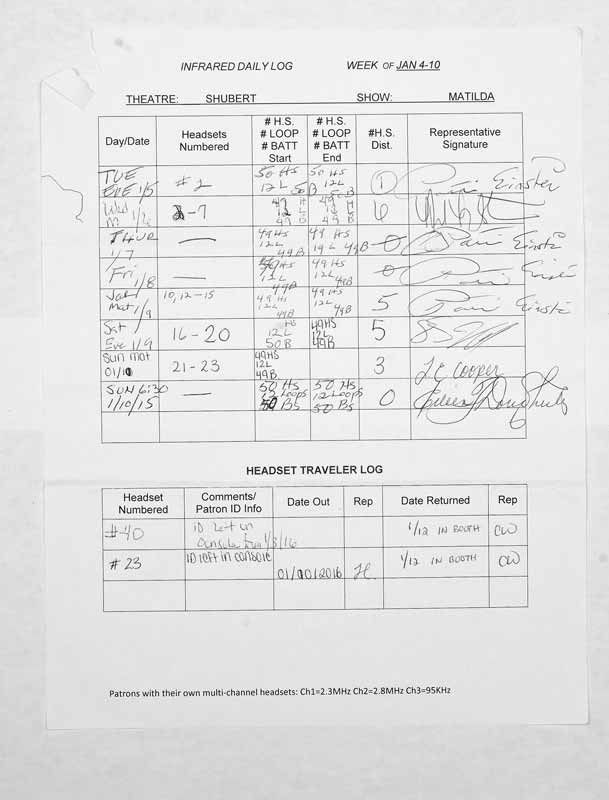 INFRARED DAILY LOG WEEK OF JAN 4-10
THEATRE: SHUBERT SHOW: MATILDA
Day/Date Headsets Numbered # H.S. # LOOP # BATT Start # H.S. # LOOP # BATT End #H.S. Dist. Representative Signature
TUE EVE 1/5 # 2 50 HS 12 L 50B 50 HS 12L 50B 1 Einster
Wed M 1/6 2-7 49 H 12 L 49 B 49 H 12 L 49 B 6
THUR 1/7 — 49 HS 12L 49B 49 HS 12 L 49B 0 Einste
Fri 1/8 — 49HS 12L 49B 49HS 12L 49B 0
Sat Mat 1/9 10, 12-15 49 HS 12L 49B 49HS 12L 49B 5 Einste
Sat Eve 1/9 16-20 HS 12L 50B 49HS 12L 49B 5
SUN MAT 01/10 21-23 49HS 12L 49B 3 J.C Cooper
SUN 6:30 1/10/15 — 50 HS 12 Loops 50 Bs 50 HS 12 Loops 50 Bs 0 Eileen Dougherty
HEADSET TRAVELER LOG
Headset Numbered Comments/ Patron ID Info Date Out Rep Date Returned Rep
#40 ID left in console 1/8/16 1/12 IN BOOTH CW
# 23 ID left in console 01/10/2016 JC 1/12 IN BOOTH CW
Patrons with their own multi-channel headsets: Ch1=2.3MHz Ch2=2.8MHz Ch3=95KHz